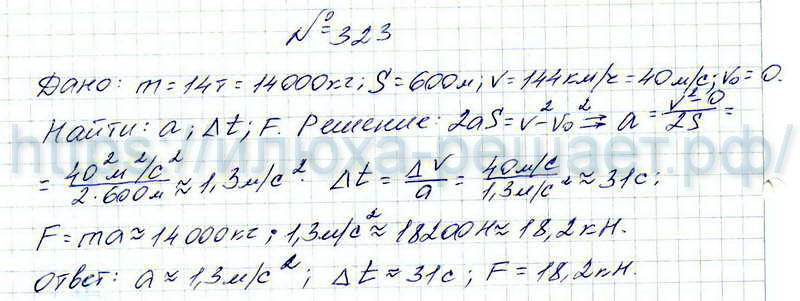 № 323
Дано: m = 14т = 14000кг; S = 600м; v = 144км/ч = 40м/с; v₀ = 0.
Найти: a; Δt; F. Решение: 2aS = v² - v₀² ⇒ a = (v² - 0)/(2S) =
= (40² м²/с²)/(2·600м) ≈ 1,3м/с². Δt = Δv/a = (40м/с)/(1,3м/с²) ≈ 31с;
F = ma ≈ 14000кг · 1,3м/с² ≈ 18200Н ≈ 18,2кН.
Ответ: a ≈ 1,3м/с²; Δt ≈ 31с; F = 18,2кН.
https://илюха-решает.рф/